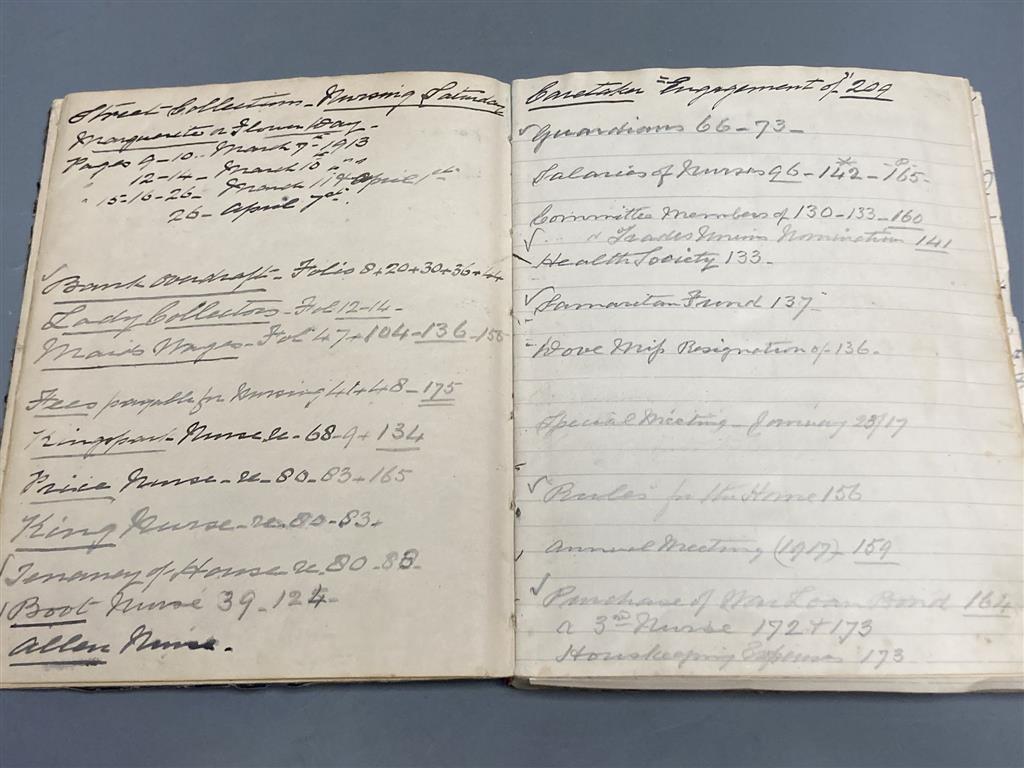 Street Collections - Nursing Saturday
Marguerite or Flower Day -
Pages 9-10 .. March 7th 1913
" 12-14 - March 10th " "
" 15-16-26 - March 11th April 1st
26 - April 7th
✓ Bank overdraft - Folio 8+20+30+36+44
Lady Collectors - Fol 12-14 -
Maids Wages - Fol 47+104-136-155
Fees payable for Nursing 41+48-175
Kingspark Nurse re - 68-9+134
Price Nurse - re - 80-83+165
King Nurse - re - 80-83+
✓ Tenancy of House re 80-88-
✓ Boot Nurse 39-124-
Allen Nurse.
Caretaker "Engagement of" 209
✓ Guardians 66-73-
Salaries of Nurses 96-142-165-
Committee Members of 130-133-160
" Trades Unions Nomination 141
✓ Health Society 133-
✓ Samaritan Fund 137
Dove Miss Resignation of 136-
Special Meeting - January 23/17
✓ Rules for the Home 156
Annual Meeting (1917) 159
✓ Purchase of War Loan Bond 164
a 3rd Nurse 172+173
Houskeeping Expenses 173